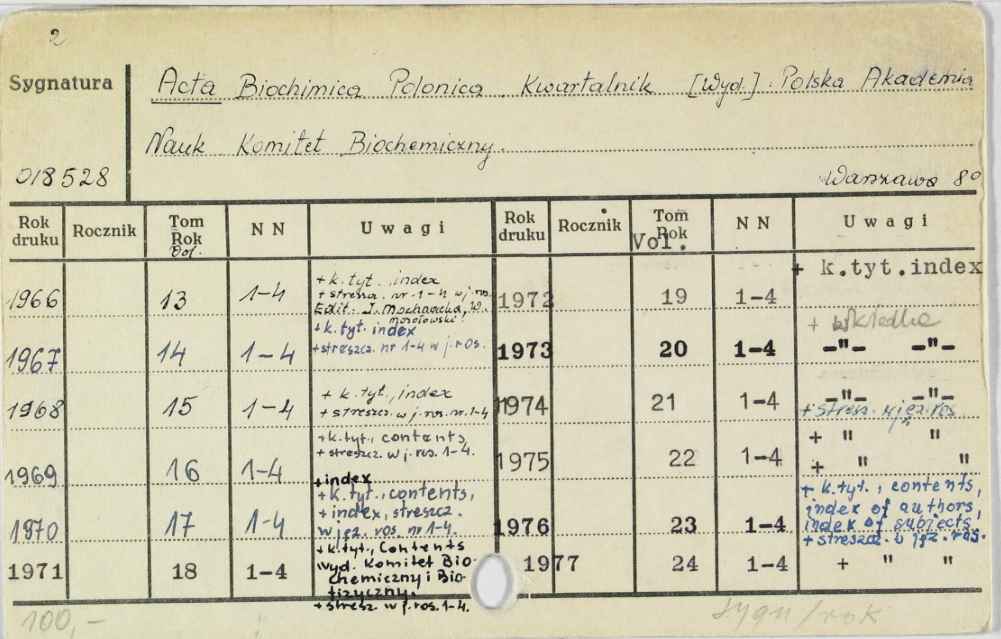 2
Sygnatura
Acta Biochimica Polonica. Kwartalnik [Wyd.]: Polska Akademia
Nauk Komitet Biochemiczny.
018528
Warszawa 8°
Rok druku Rocznik Tom Rok Vol. N N Uwagi Rok druku Rocznik Tom Rok Vol. N N Uwagi
1966 13 1-4 + k. tyt. index
+ streszcz. nr. 1-4 w j. ros.
Edit.: J. Mochnacka, W.
Mozołowski
1967 14 1-4 + k. tyt. index
+ streszcz. nr 1-4 w j. ros.
1968 15 1-4 + k. tyt., index
+ streszcz. w j. ros. nr. 1-4
1969 16 1-4 + k. tyt., contents,
+ streszcz. w j. ros. 1-4.
+index
1970 17 1-4 + k. tyt., contents,
+ index, streszcz.
w jęz. ros. nr 1-4.
1971 18 1-4 + k. tyt., contents
wyd. Komitet Bio-
chemiczny i Bio-
fizyczny.
+ stresz. w j. ros. 1-4.
1972 19 1-4 + k.tyt.index
+ wkładka
1973 20 1-4 -"- -"-
1974 21 1-4 -"- -"-
+ stresz. w jęz. ros
1975 22 1-4 + " "
+ " "
1976 23 1-4 + k. tyt., contents,
index of authors,
index of subjects,
+ streszcz. w jęz. ros.
1977 24 1-4 + " "
100,-
sygn/rok